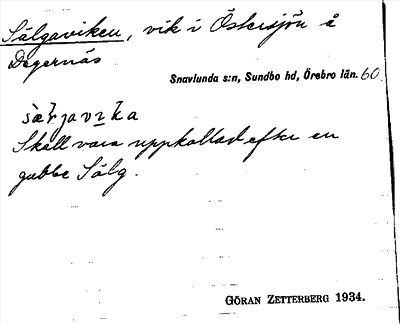 Sälgaviken, vik i Östersjön å
Degernäs
Snavlunda s:n, Sundbo hd, Örebro län. 60.
Skall vara uppkallad efter en
gubbe Sälg.
GÖRAN ZETTERBERG 1934.